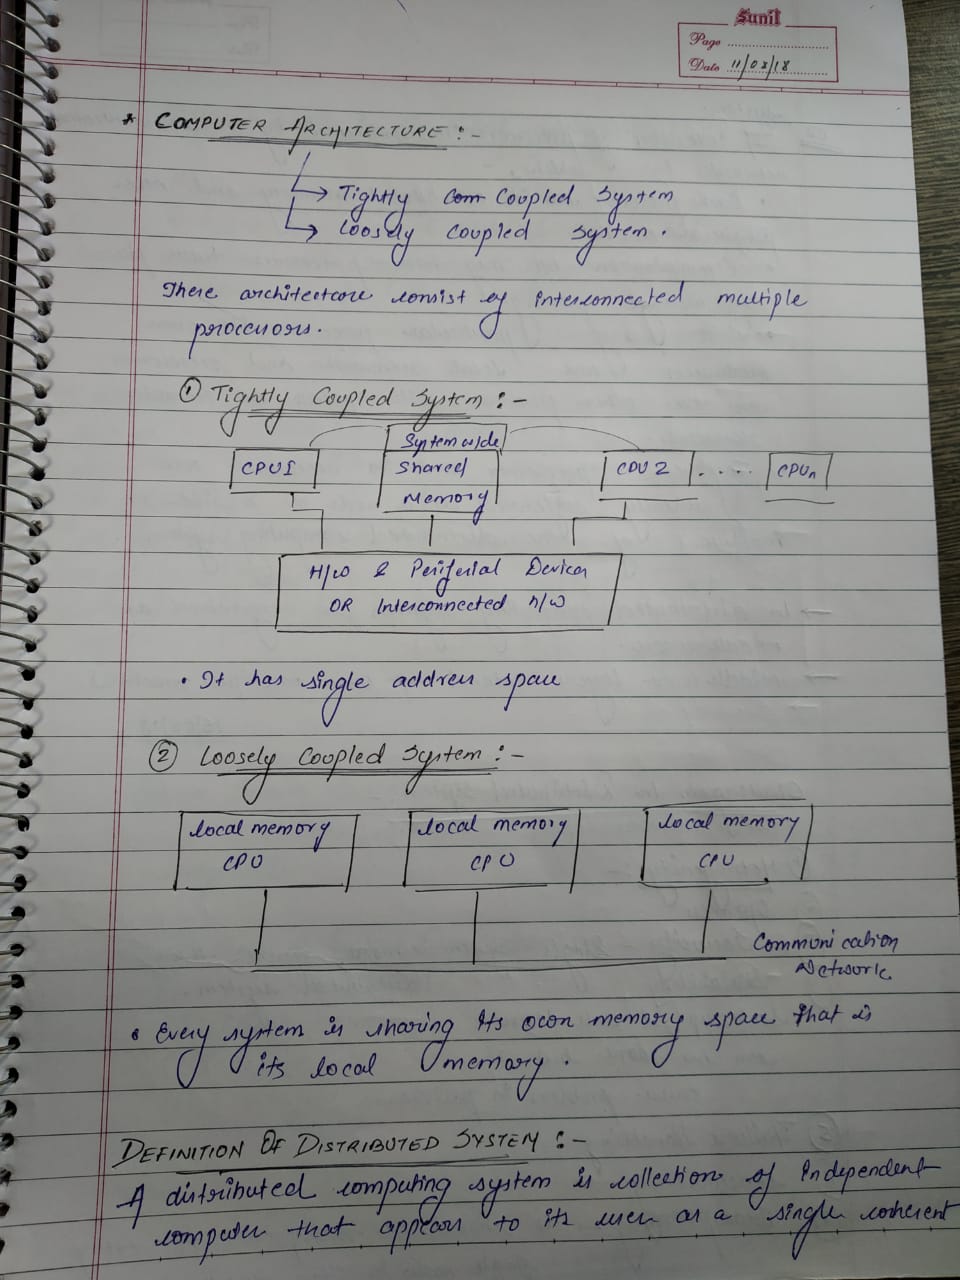 Sunil
Page
Date 11/08/18
* COMPUTER ARCHITECTURE :-
Tightly Coupled System
Loosely Coupled System.
There architecture consist of interconnected multiple
processors.
① Tightly Coupled System :-
System wide
CPU1 Shared CPU 2 .... CPUn
Memory
H/w & Periferial Devices
OR Interconnected n/w
• It has single address space
② Loosely Coupled System :-
local memory local memory local memory
CPU CPU CPU
Communication
Network
• Every system is sharing its own memory space that is
its local memory.
DEFINITION OF DISTRIBUTED SYSTEM :-
A distributed computing system is collection of Independent
computer that appears to its user as a single coherent